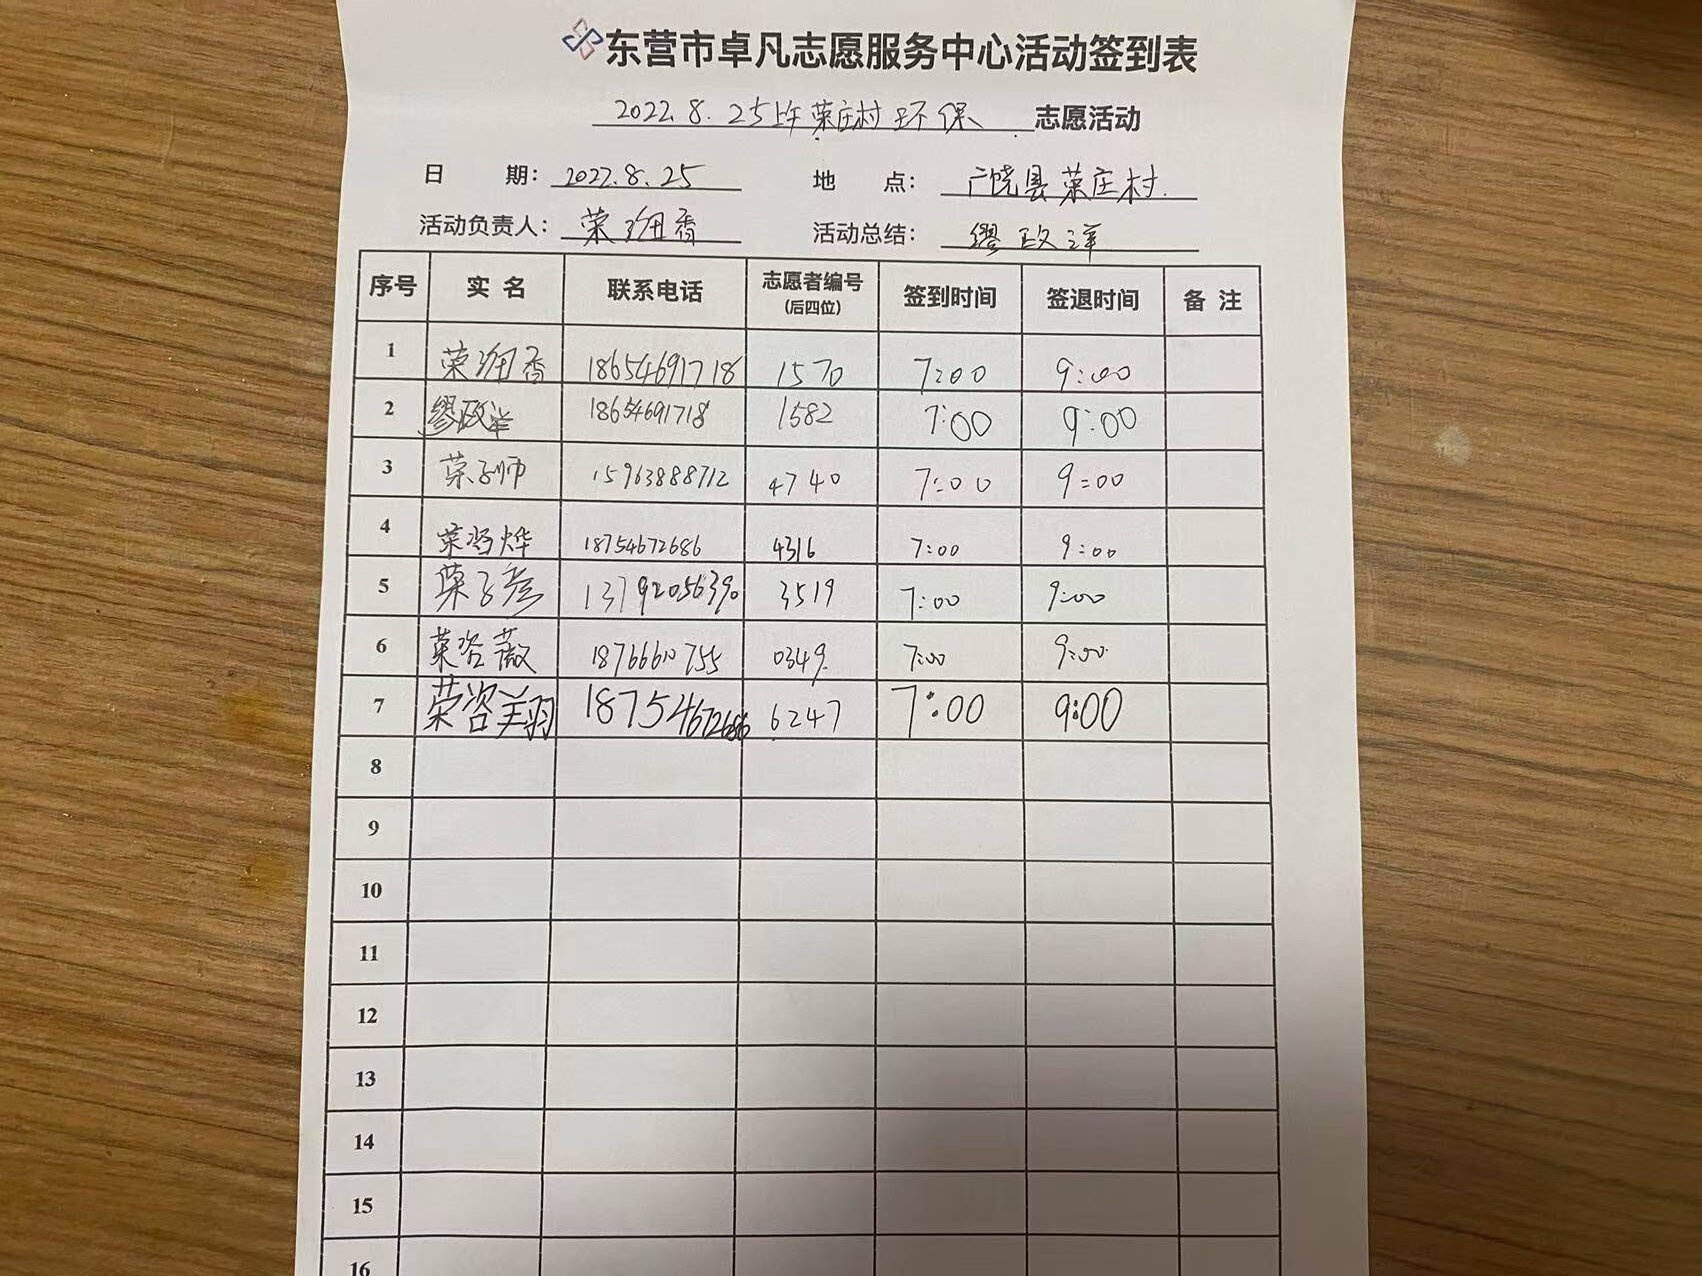 东营市卓凡志愿服务中心活动签到表
2022.8.25上午荣庄村环保 志愿活动
日 期: 2022.8.25 地 点: 广饶县荣庄村.
活动负责人: 荣翔香 活动总结: 缪政洋
序号 实名 联系电话 志愿者编号(后四位) 签到时间 签退时间 备注
1 荣翔香 18654691718 1570 7:00 9:00
2 缪政洋 18654691718 1582 7:00 9:00
3 荣子师 15963888712 4740 7:00 9:00
4 荣烨 18754672686 4316 7:00 9:00
5 荣子彦 13792056390 3519 7:00 9:00
6 荣咨薇 18766610755 0349 7:00 9:00
7 荣咨美羽 18754672686 6247 7:00 9:00
8
9
10
11
12
13
14
15
16